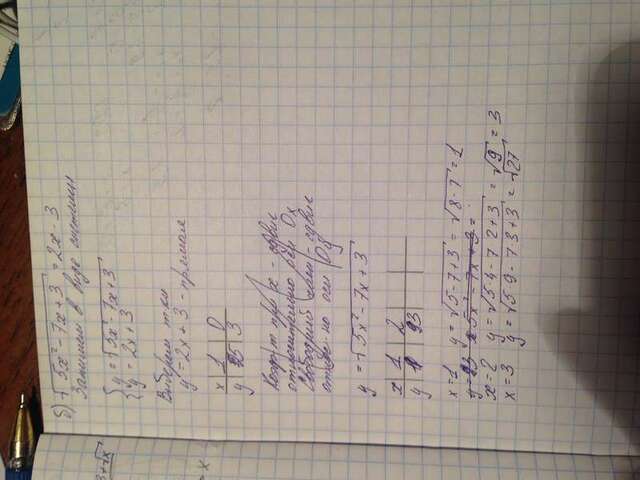 б) √5x² - 7x + 3 = 2x - 3
Запишем в виде системы
{ y = √5x² - 7x + 3
{ y = 2x + 3
Выберем тчки
y = 2x + 3 - прямая
x | 1 | 0
y | 5 | 3
Коэф-т при x - сдвиг
относительно оси Ox
Свободный член - сдвиг
относ-но оси Oy
y = √5x² - 7x + 3
x | 1 | 2
y | 1 | 3
x = 1 y = √5 - 7 + 3 = √8 - 7 = 1
5x² - 7x + 3 =
x = 2 y = √5·4 - 7·2 + 3 = √9 = 3
x = 3 y = √5·9 - 7·3 + 3 = √27
3 + √x
x